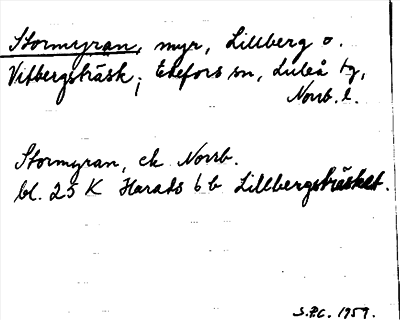 Stormyran, myr, Lillberg o.
Vitbergsträsk; Edefors sn, Luleå tg,
Norrb. l.
Stormyran, ek Norrb.
bl. 25 K Harads 6 b Lillbergsträsket.
1959.